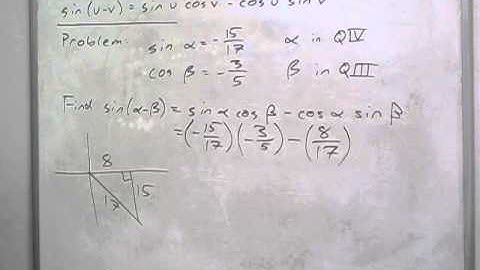 sin(u-v) = sin u cos v - cos u sin v
Problem: sin α = -15/17 α in QIV
cos β = -3/5 β in QIII
Find sin(α-β) = sin α cos β - cos α sin β
= (-15/17)(-3/5) - (8/17)
8
15
17